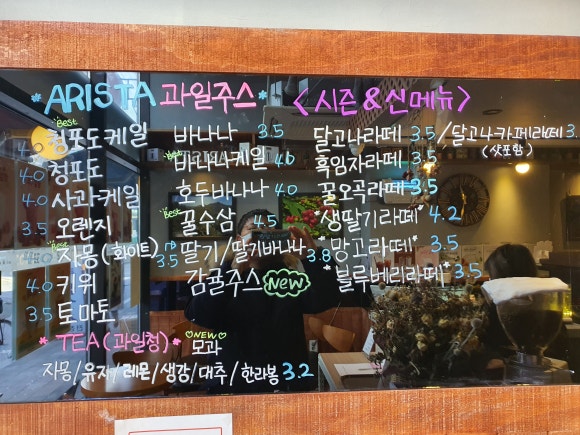 *ARISTA 과일주스*
<시즌&신메뉴>
Best
4.0 청포도케일
4.0 청포도
4.0 사과케일
3.5 오렌지
Best
자몽(화이트)
4.0 키위
3.5 토마토
바나나 3.5
Best
바나나케일 4.0
호두바나나 4.0
Best
꿀수삼 4.5
3.5 딸기/딸기바나나 3.8
감귤주스 New
달고나라떼 3.5/달고나카페라떼 3.
(샷포함)
흑임자라떼 3.5
꿀오곡라떼 3.5
생딸기라떼* 4.2
*망고라떼* 3.5
*블루베리라떼* 3.5
*TEA(과일청)*
NEW
모과
자몽/유자/레몬/생강/대추/한라봉 3.2